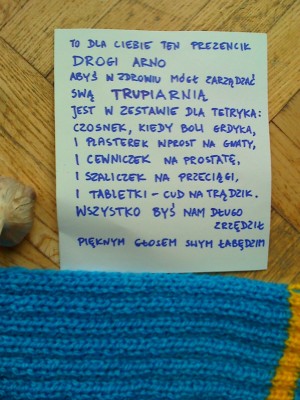 TO DLA CIEBIE TEN PREZENCIK
DROGI ARNO
ABYŚ W ZDROWIU MÓGŁ ZARZĄDZAĆ
SWĄ TRUPIARNIĄ
JEST W ZESTAWIE DLA TETRYKA:
CZOSNEK, KIEDY BOLI GRDYKA,
I PLASTEREK WPROST NA GNATY,
I CEWNICZEK NA PROSTATĘ,
I SZALICZEK NA PRZECIĄGI,
I TABLETKI – CUD NA TRĄDZIK.
WSZYSTKO BYŚ NAM DŁUGO
ZRZĘDZIŁ
PIĘKNYM GŁOSEM SWYM ŁABĘDZIM